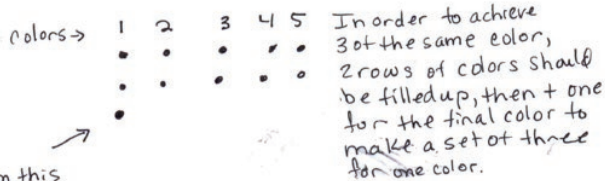 colors→ 1 2 3 4 5
In order to achieve
3 of the same color,
2 rows of colors should
be filled up, then + one
for the final color to
make a set of three
for one color.
n this